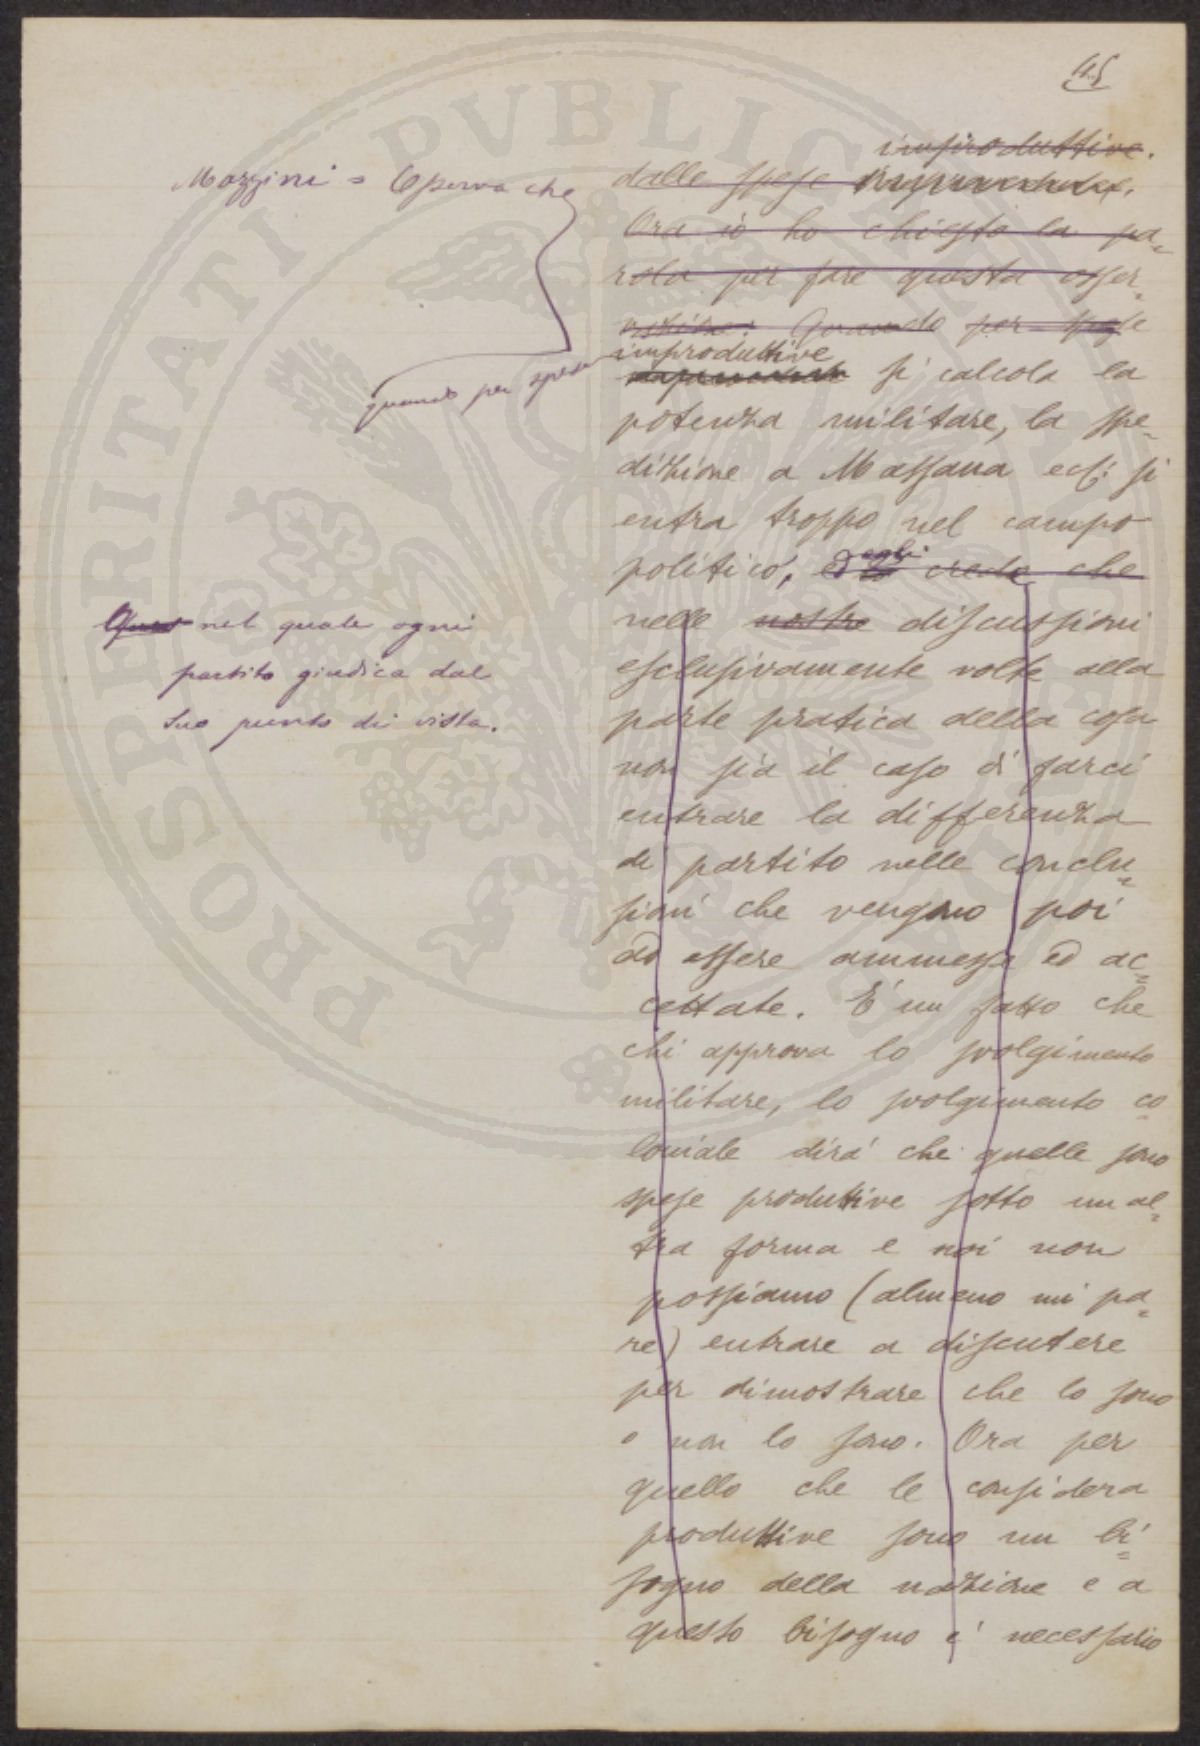 45
improduttive.
dalle spese
Ora io ho chiesto la pa=
rola per fare questa osser=
vazione. Quando per spese
improduttive
si calcola la
potenza militare, la spe=
dizione a Massaua ecc: si
entra troppo nel campo
politico, ed io egli crede che
nelle nostre discussioni
esclusivamente volte alla
parte pratica della cosa
non sia il caso di farci
entrare la differenza
di partito nelle conclu=
sioni che vengono poi
ad essere ammesse ed ac=
cettate. E' un fatto che
chi approva lo svolgimento
militare, lo svolgimento co
loniale dirà che quelle sono
spese produttive sotto un al=
tra forma e noi non
possiamo (almeno mi pa=
re) entrare a discutere
per dimostrare che lo sono
o non lo sono. Ora per
quello che le considera
produttive sono un bi=
sogno della nazione e a
questo bisogno è necessario
Mazzini = Osserva che
quando per spese
nel quale ogni
partito giudica dal
suo punto di vista.
PROSPERITATI PUBLICAE